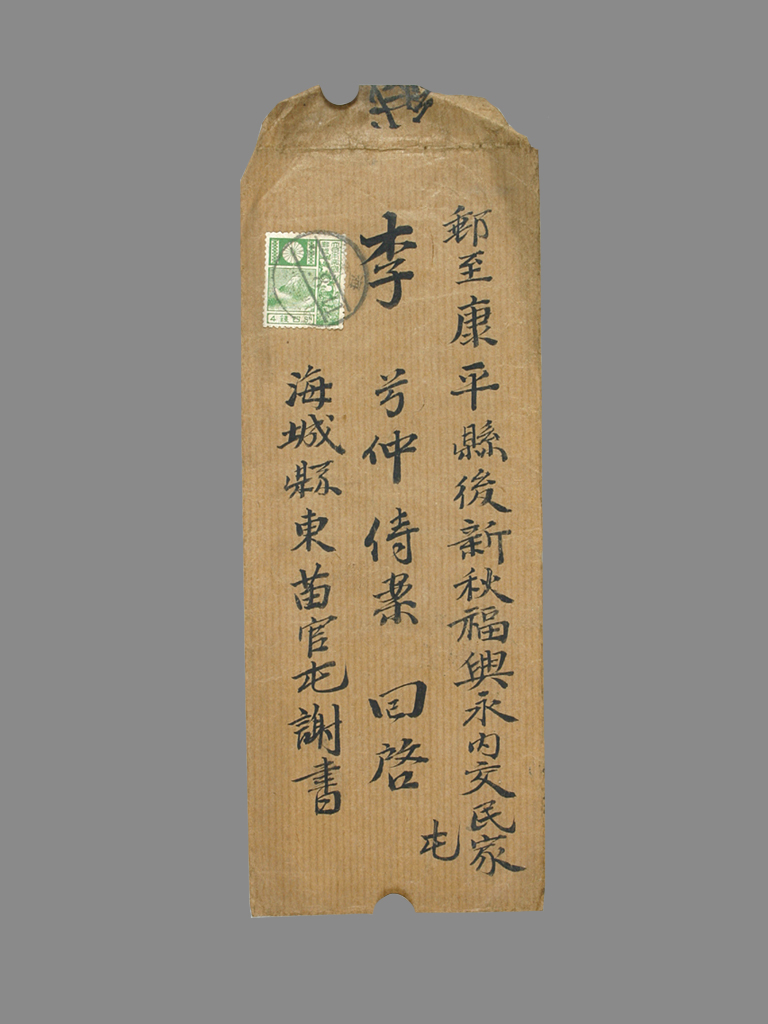 郵至康平縣後新秋福興永内交民家
屯
李 兮仲侍案 回啓
海城縣東苗官屯謝書